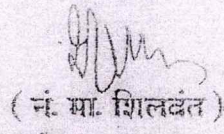 ( नं. मा. शिलवंत )